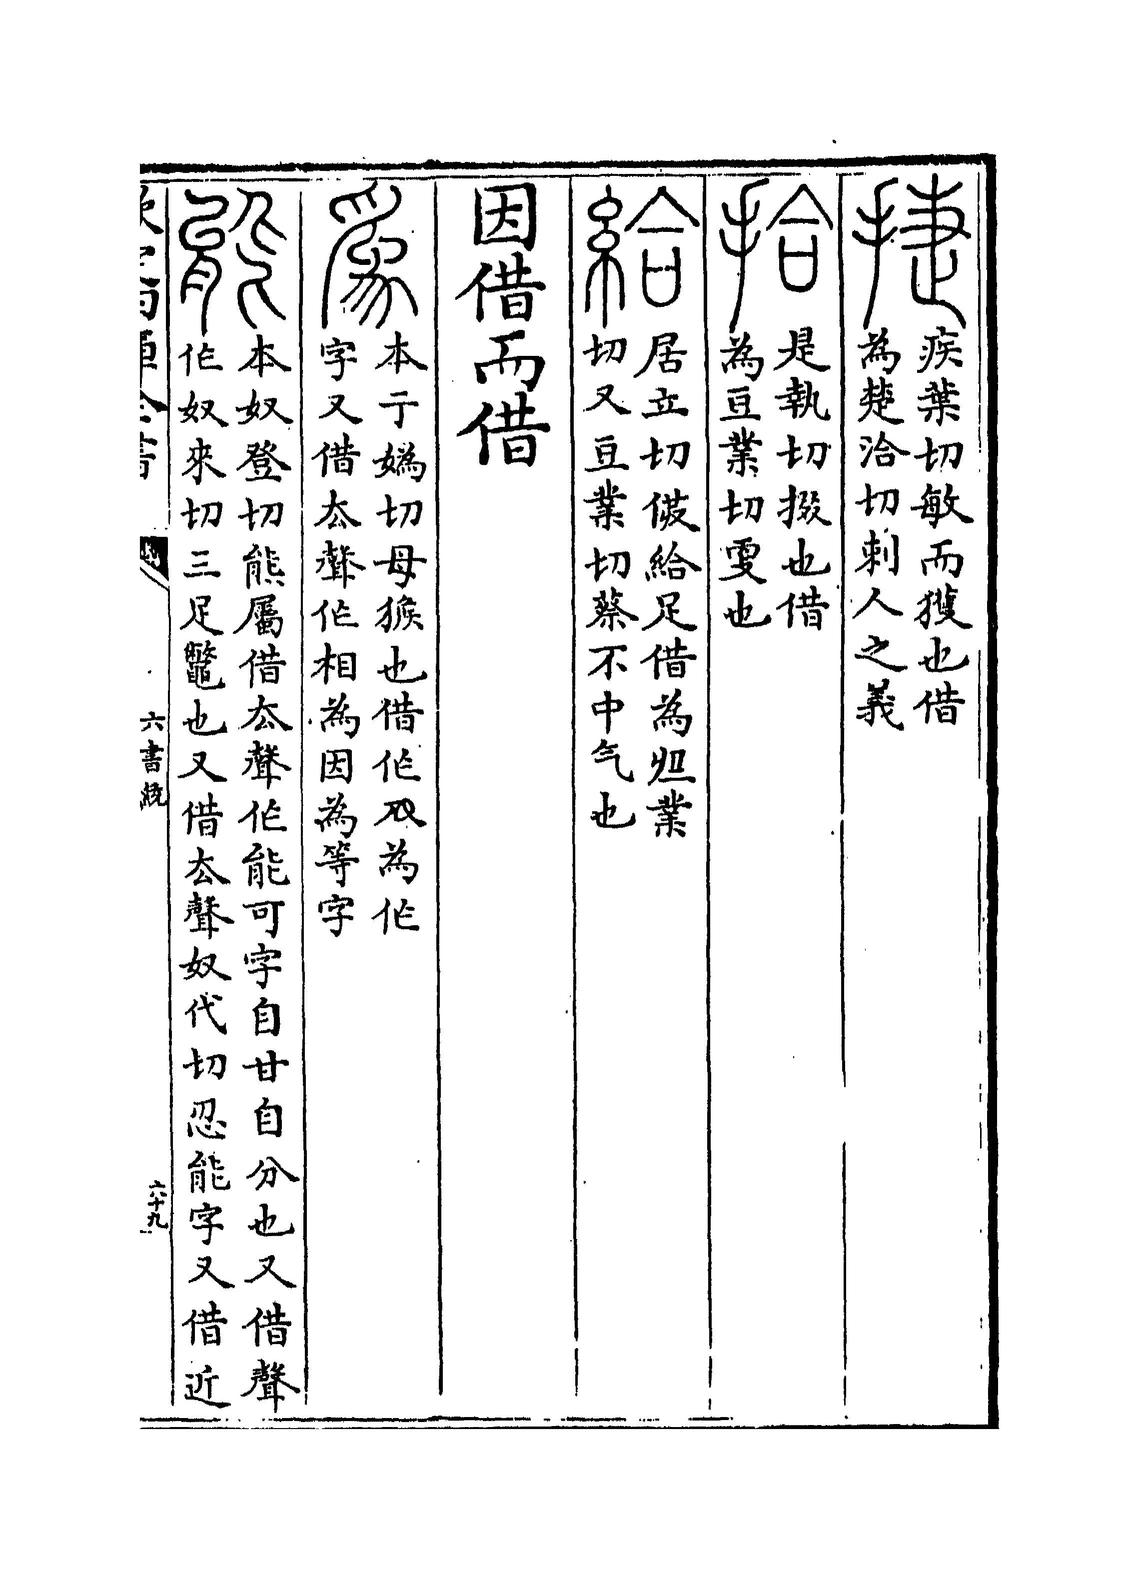 捷
疾葉切敏而獲也借
為楚洽切刺人之義
拾
是執切掇也借
為亘業切更也
給
居立切僾給足借為𡚨業
切又亘業切蔡不中气也
因借而借
爲
本于嬀切母猴也借作
為作
字又借厺聲作相為因為等字
能
本奴登切熊屬借厺聲作能可字自甘自分也又借聲
作奴來切三足鼈也又借厺聲奴代切忍能字又借近
欽定四庫全書
六書統
六十九